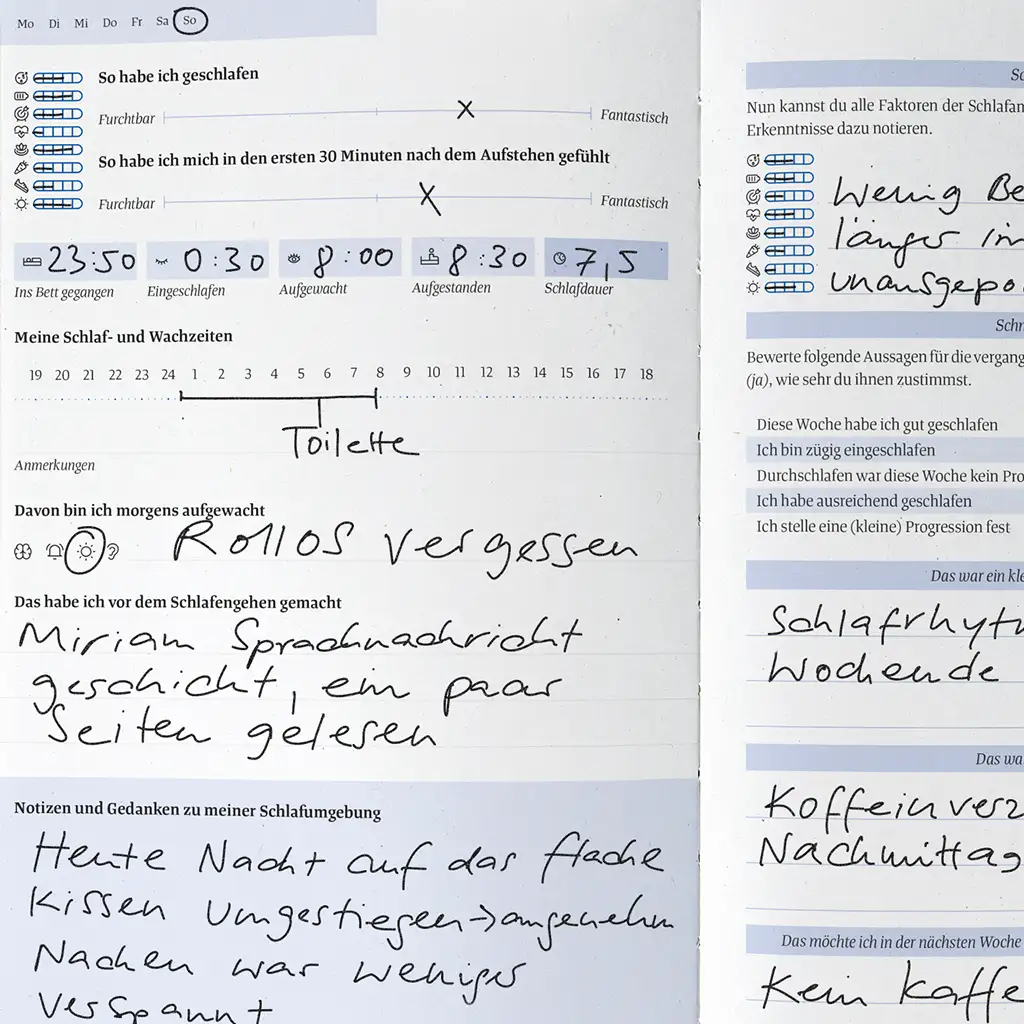 Mo Di Mi Do Fr Sa So
So habe ich geschlafen
Furchtbar Fantastisch
So habe ich mich in den ersten 30 Minuten nach dem Aufstehen gefühlt
Furchtbar Fantastisch
23:50 0:30 8:00 8:30 7,5
Ins Bett gegangen Eingeschlafen Aufgewacht Aufgestanden Schlafdauer
Meine Schlaf- und Wachzeiten
19 20 21 22 23 24 1 2 3 4 5 6 7 8 9 10 11 12 13 14 15 16 17 18
Toilette
Anmerkungen
Davon bin ich morgens aufgewacht
Rollos vergessen
Das habe ich vor dem Schlafengehen gemacht
Miriam Sprachnachricht
geschickt, ein paar
Seiten gelesen
Notizen und Gedanken zu meiner Schlafumgebung
Heute Nacht auf das flache
Kissen umgestiegen→angenehm
Nacken war weniger
verspannt
Nun kannst du alle Faktoren der Schlafan
Erkenntnisse dazu notieren.
Wenig Be
länger im
unausgepo
Schr
Bewerte folgende Aussagen für die vergang
(ja), wie sehr du ihnen zustimmst.
Diese Woche habe ich gut geschlafen
Ich bin zügig eingeschlafen
Durchschlafen war diese Woche kein Pro
Ich habe ausreichend geschlafen
Ich stelle eine (kleine) Progression fest
Das war ein kle
Schlafrhyth
Wochende
Das wa
Koffeinverz
Nachmittag
Das möchte ich in der nächsten Woche
Kein Kaffe